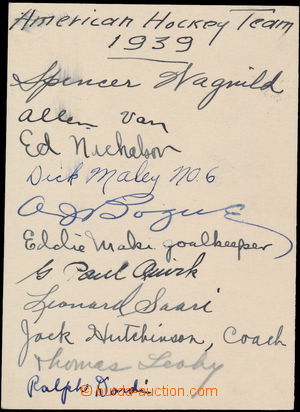 American Hockey Team
1939
Spencer Wagnild
Allen Van
Ed Nichalson
Dick Maley NO. 6
A J Bogue
Eddie Maki goalkeeper
G Paul Quirk
Leonard Saari
Jack Hutchinson, Coach
Thomas Leahy
Ralph Dondi
burda-auction.com